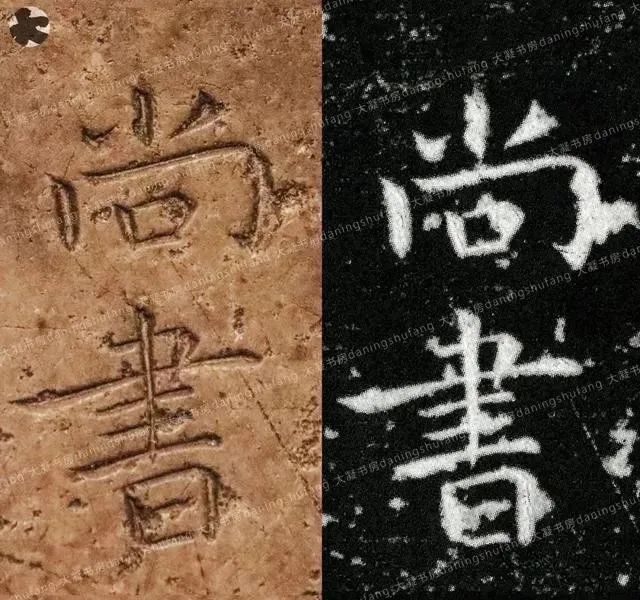 尚書
尚書
大凝书房daningshufang